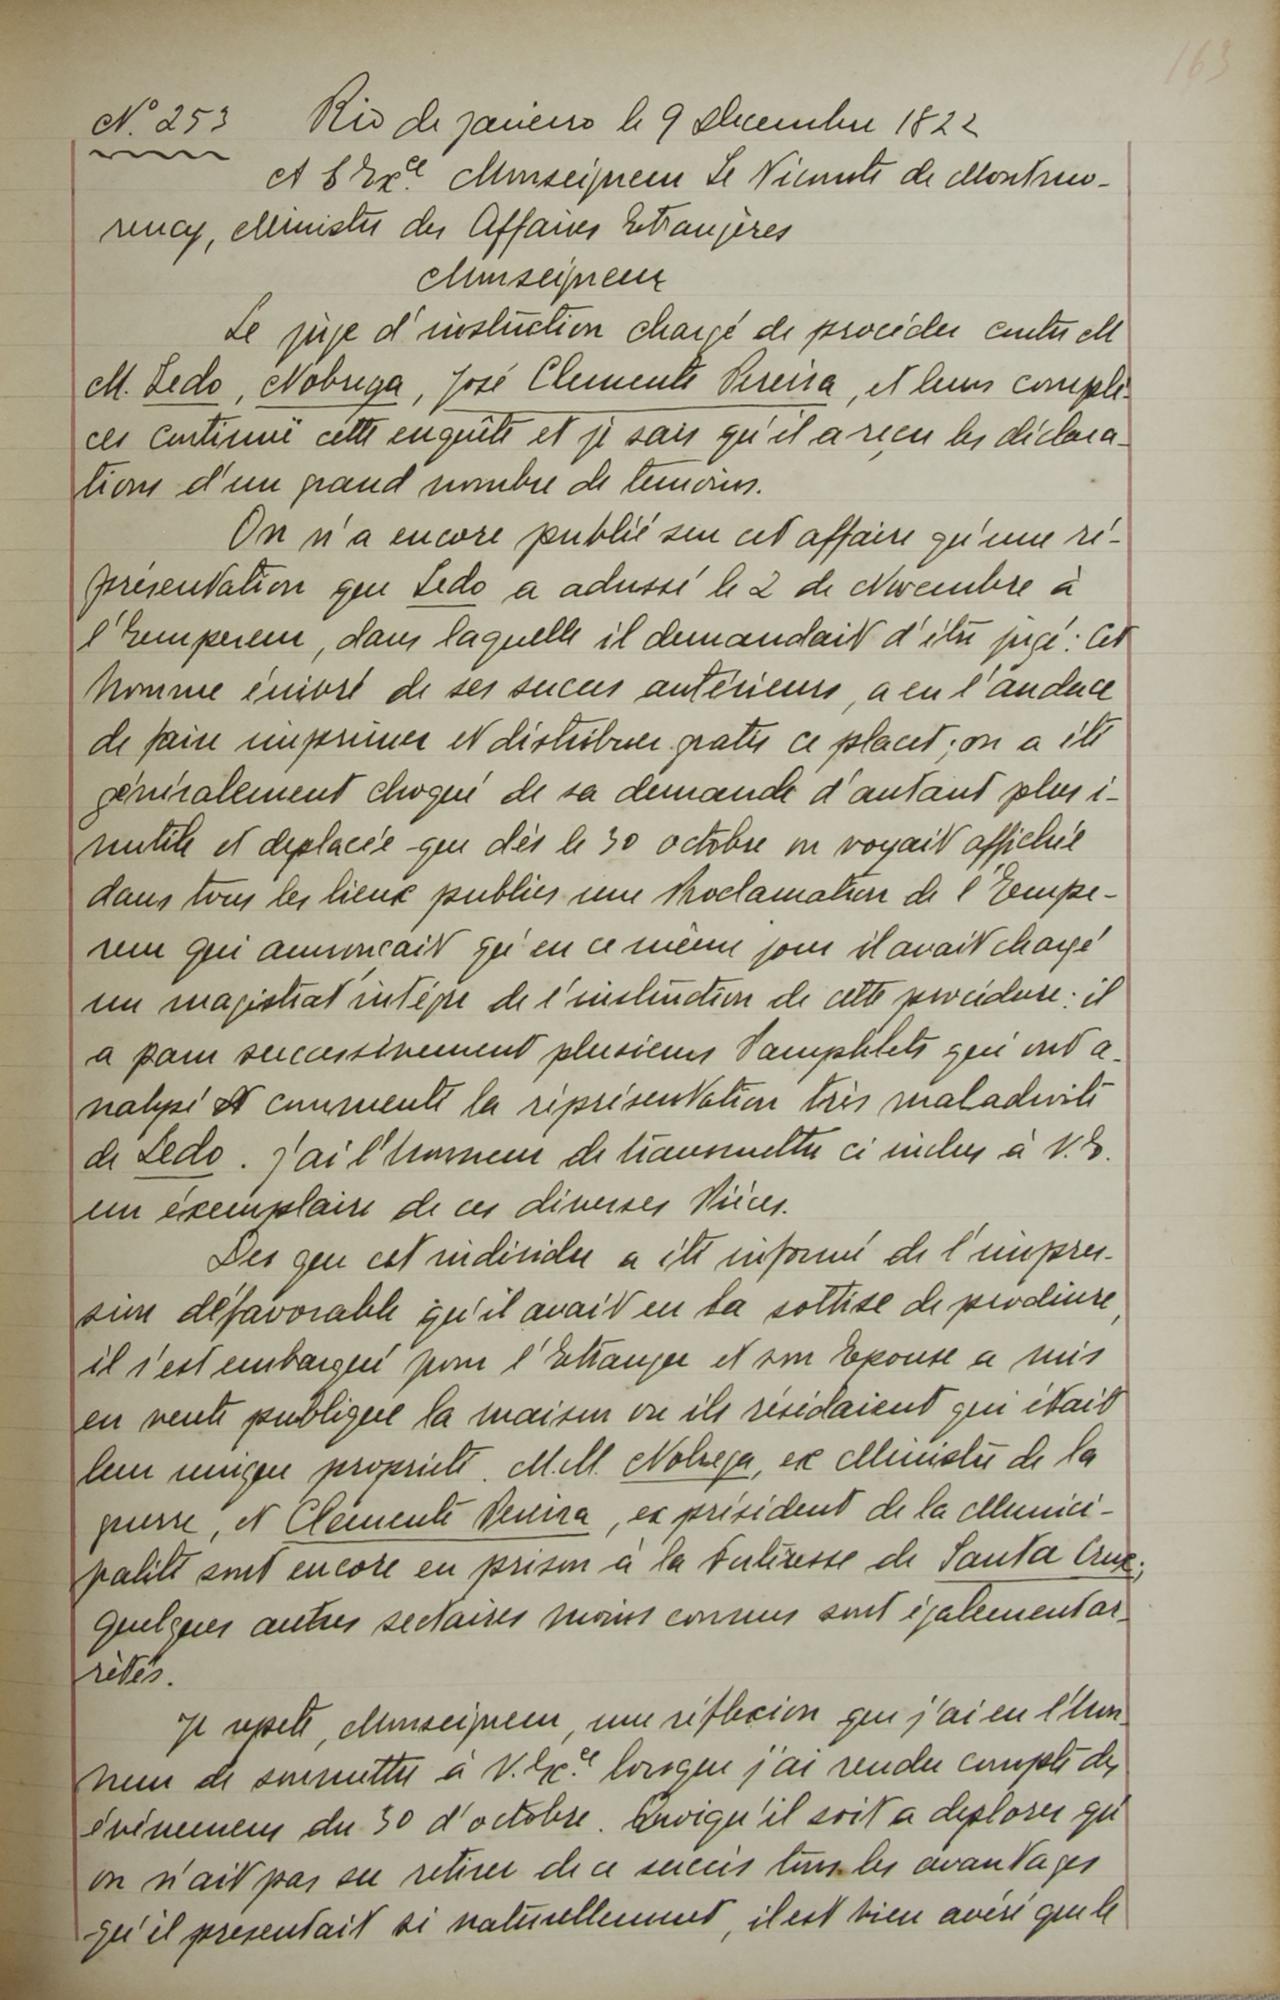 163
N.° 253 Rio de janeiro le 9 Decembre 1822
A S Ex.ce Monseigneur Le Vicomte de Montmo-
rency, Ministre des Affaires Etrangères
Monseigneur
Le juge d'instruction chargé de procéder contre M
M. Ledo, Nobrega, José Clemente Pereira, et leurs compli-
ces continuë cette enquête et je sais qu'il a reçu les déclara-
tions d'un grand nombre de temoins.
On n'a encore publié sur cet affaire qu'une ré-
présentation que Ledo a adressé le 2 de Novembre à
l'Empereur, dans laquelle il demandait d'être jugé: Cet
homme énivré de ses succes antérieurs, a eu l'audace
de faire imprimer et distribuer gratis ce placet; on a été
généralement choqué de sa demande d'autant plus i-
nutile et deplacée que dés le 30 octobre on voyait affichée
dans tous les lieux publics une Proclamation de l'Empe-
reur qui annonçait qu'en ce même jour il avait chargé
un magistrat intégre de l'instruction de cette procédure: il
a paru successivement plusieurs Pamphlets qui ont a-
nalysé et commenté la réprésentation très maladroite
de Ledo. J'ai l'honneur de transmettre ci inclus à V. E.
un éxemplaire de ces diverses Piéces.
Des que cet individu a été informé de l'impres-
sion défavorable qu'il avait eu la sottise de produire,
il s'est embarqué pour l'Etranger et son Epouse a mis
en vente publique la maison ou ils résidaient qui était
leur unique propriété. M.M. Nobrega, ex Ministre de la
guerre, et Clemente Pereira, ex président de la Munici-
palité sont encore en prison à la forteresse de Santa Cruz;
quelques autres sectaires moins connus sont également ar-
rêtés.
Je repete, Monseigneur, une réflexion que j'ai eu l'hon-
neur de soumettre à V. Ex.ce lorsque j'ai rendu compte des
événemens du 30 d'octobre. Quoiqu'il soit a deplorer qu'
on n'ait pas su retirer de ce succès tous les avantages
qu'il presentait si naturellement, il est bien avéré que le